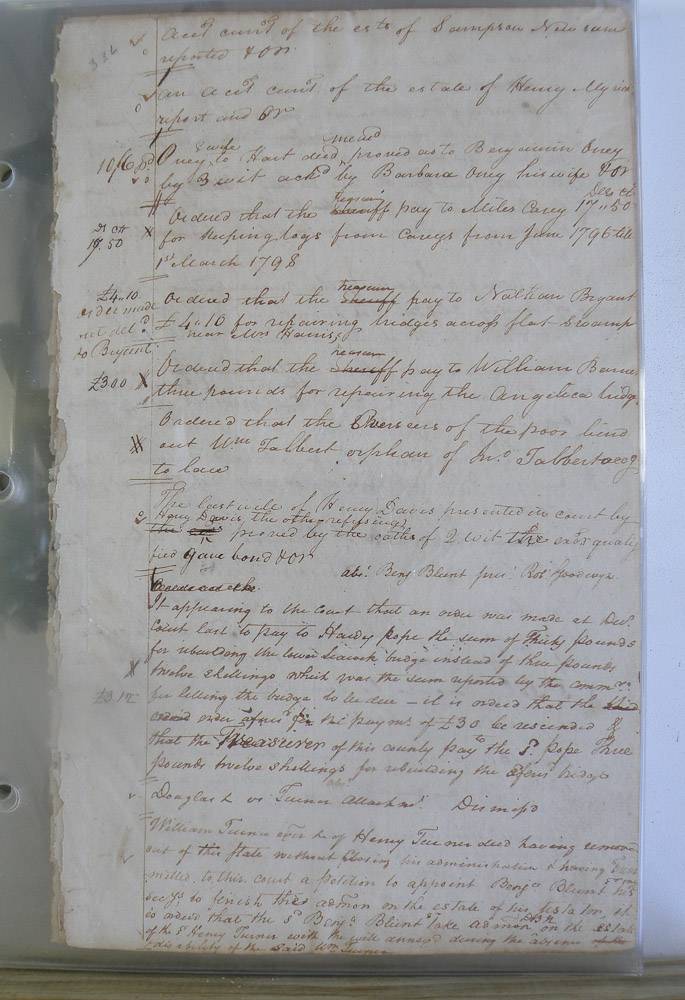 332
Acct curt of the este of Sampson Newsum
reported & OR
an Acct curt of the estate of Henry Myrick
report and OR
10/6 pd
& wife
Oney to Hart deed proved as to Benjamin Oney
by 3 wit ackd by Barbara Oney his wife & OR
Treasurer
Dls Cts
Ordered that the sheriff pay to Miles Carey 17"50
Ds Cts
17.50
for keeping logs from Careys from June 1796 till
1st March 1798
£4.10
order made
not deld
to Bryant
Treasurer
Ordered that the sheriff pay to Nathan Bryant
£4"10 for repairing bridges across flat Swamp
near Mrs Harris's
£3.00
Treasurer
Ordered that the sheriff pay to William Barnes
three pounds for repairing the Angelica bridge
Ordered that the Overseers of the poor bind
out Wm Tabbert orphan of Jno Tabbert accg
to law
The last will of Henry Davis presented in court by
Henry Davis, the other refusing,
the proved by the oaths of 2 wit the exor quali
fied gave bond & OR
abst Benj Blunt prest Robt Goodwyn
It appearing to the court that an order was made at Decr
court last to pay to Hardy Pope the sum of Thirty pounds
for rebuilding the lower Seacock bridge instead of three pounds
twelve shillings which was the sum reported by the commrs
£3.12
for letting the bridge to be due - it is ordered that the said
order aforesd for the paymt of £30 be rescinded &
that the Treasurer of this county pay to the sd Pope Three
pounds twelve shillings for rebuilding the aforesd bridge
Douglas & vs Turner Attachmt Dismissd
William Turner exor &c of Henry Turner deed having removed
out of this state without closing his administration & having
mitted to this court a petition to appoint Benja Blunt his
secy to finish the admon on the estate of his testator, it
is ordered that the sd Benja Blunt take admon DBN on the estate
of the sd Henry Turner with the will annexd during the absence
& disability of the said Wm Turner